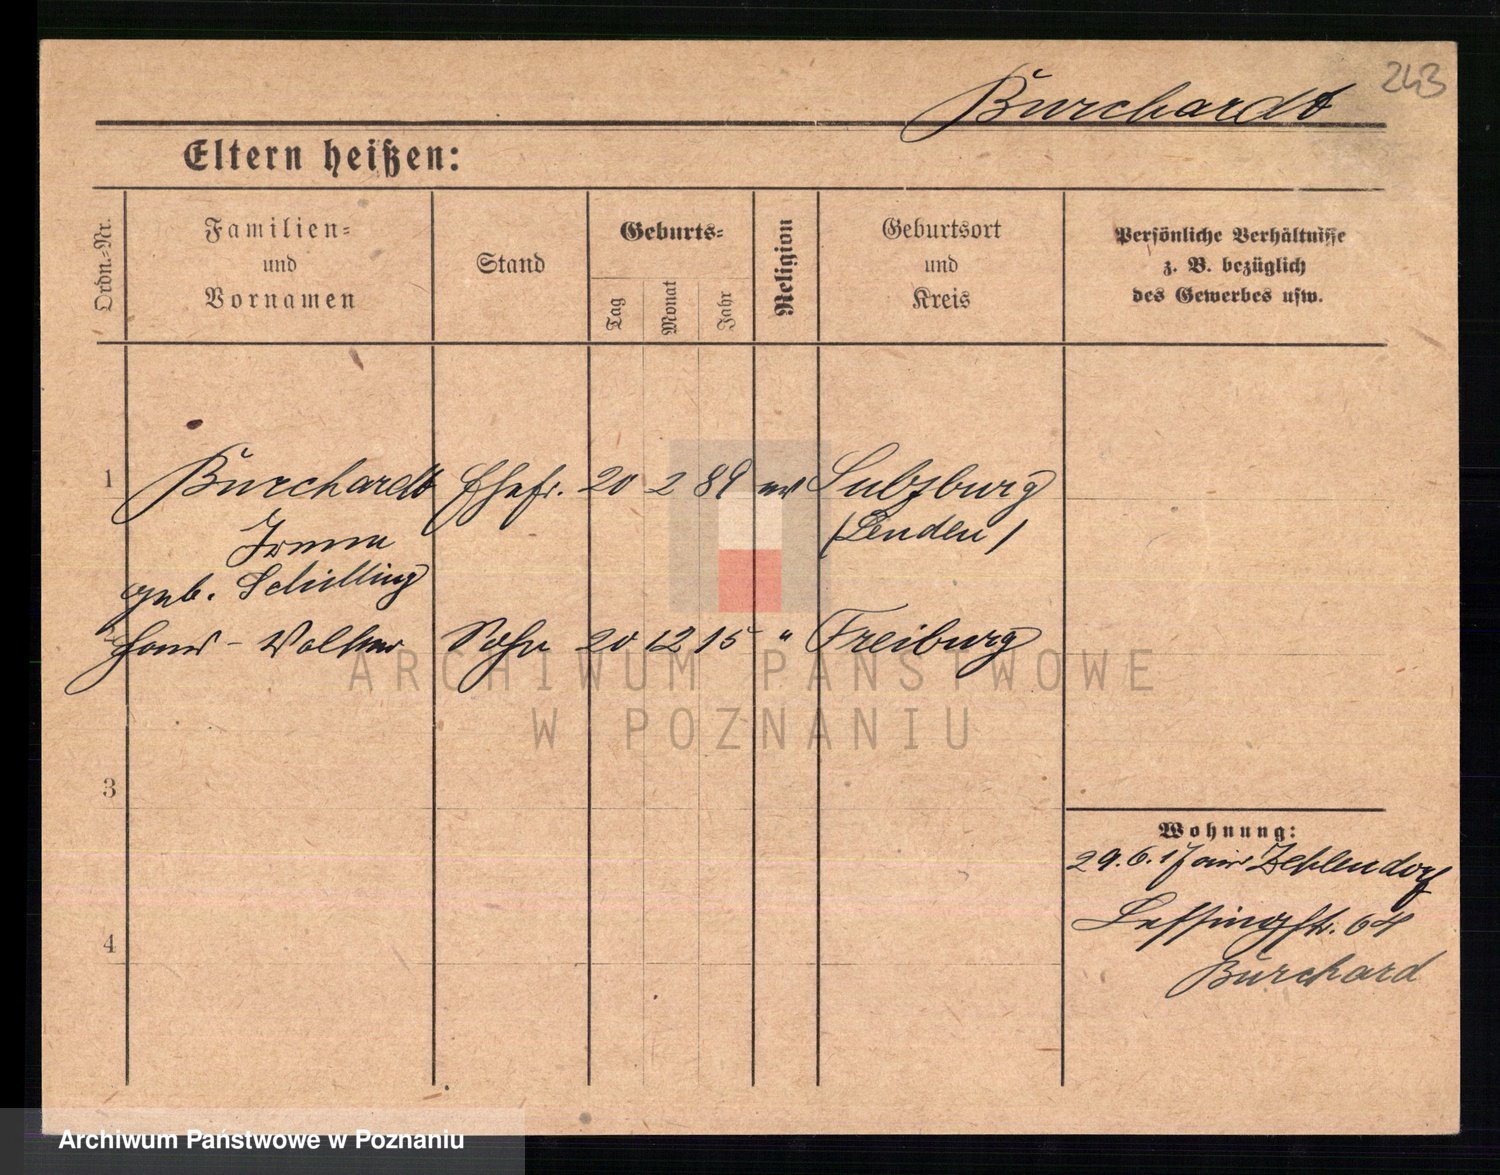 243
Burchardt
Eltern heißen:
Ordn.-Nr.
Familien-
und
Vornamen
Stand
Geburts-
Tag
Monat
Jahr
Religion
Geburtsort
und
Kreis
Persönliche Verhältnisse
z. B. bezüglich
des Gewerbes usw.
1 Burchardt Ehefr. 20 2 89 ev Sulzburg
Irma (Lenden)
geb. Schilling
Hans - Volker Sohn 20 12 15 " Freiburg
ARCHIWUM PAŃSTWOWE
W POZNANIU
3
Wohnung:
29.6.17 Zehlendorf
Lessingstr. 64
4
Burchard
Archiwum Państwowe w Poznaniu